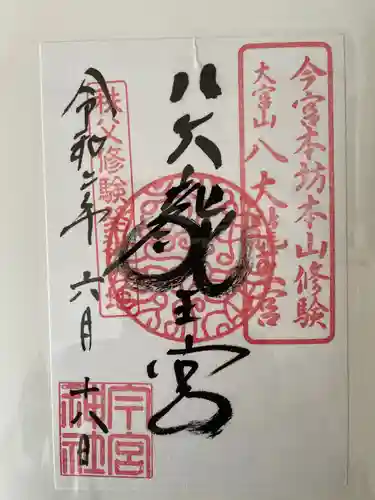 今宮本坊本山修験
大宮山八大龍宮
八大龍王宮
秩父修験
令和二年六月十八日
今宮
神社